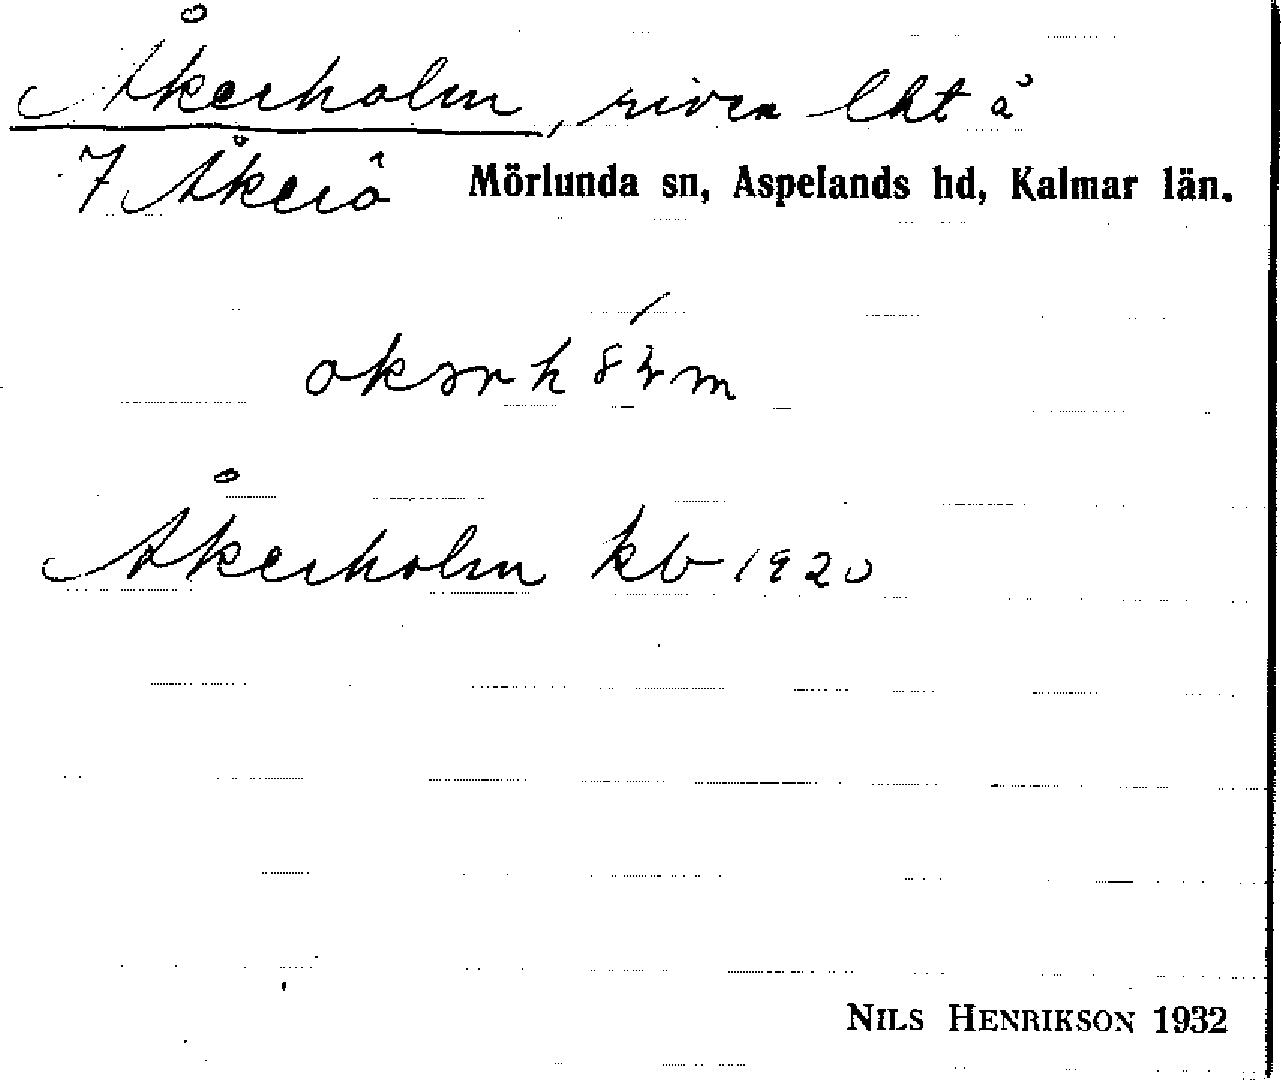 Åkerholm, riven lht å
7 Åkerö Mörlunda sn, Aspelands hd, Kalmar län.
Åkerholm kb 1920
NILS HENRIKSON 1932